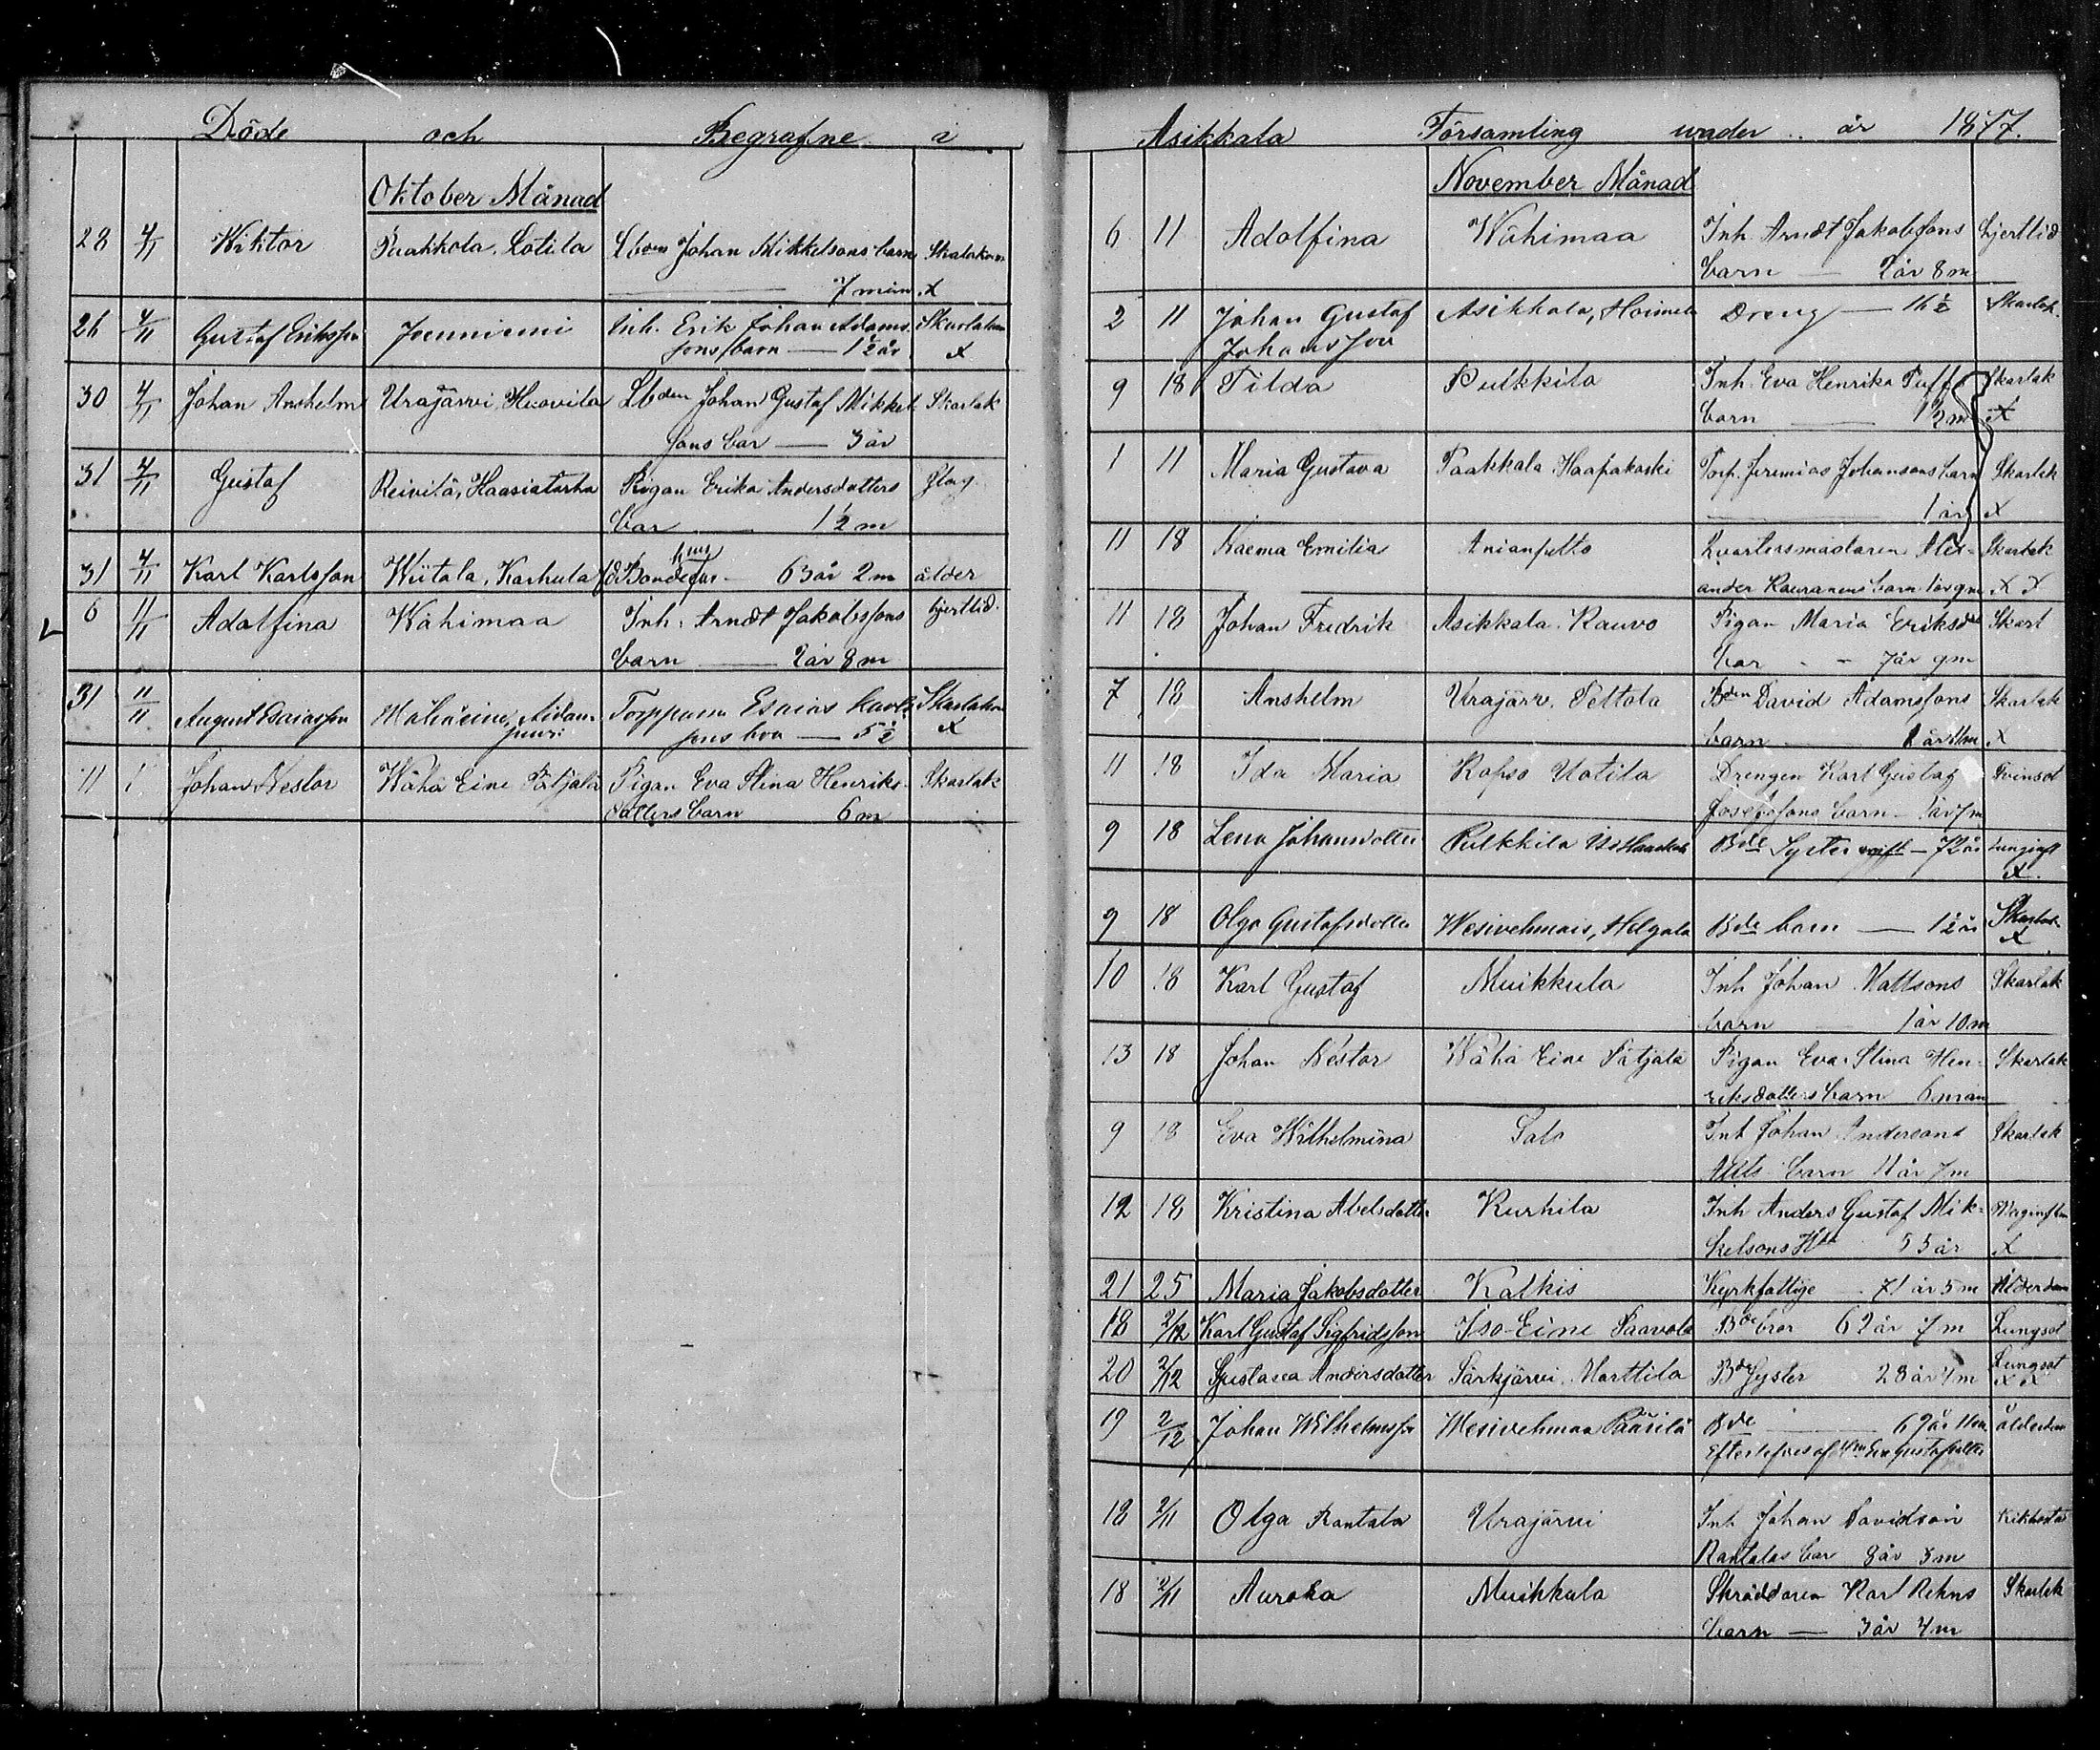 Döde och Begrafne i
Oktober Månad
28 4/11 Wiktor Paakkola, Lotila Lbon Johan Mikkelsons barn Skarlakan
7 mån. x
26 4/11 Gustaf Eriksson Joenniemi Inh. Erik Johan Adams- Skarlakan
sons barn — 1½ år x
30 4/11 Johan Anshelm Urajärvi, Huovila Lbden Johan Gustaf Mikkel Skarlak
sons bar — 3 år
31 4/11 Gustaf Reivilä, Haasiatarha Pigan Erika Andersdotters Slag
bar — 1½ m
31 4/11 Karl Karlsson Wiitala, Karhula fd Bonde 63 år 2 m ålder
6 11/11 Adolfina Wähimaa Inh. Arndt Jakobssons hjertlid.
barn — 2 år 8 m
31 11/11 August Esaiasson Torpparen Esaias Skarlakan
sons — 5½ x
11 1 Johan Nestor Wähä Eine Pätjälä Pigan Eva Stina Henriks- Skarlak
dotters barn 6 m
Asikkala Församling under år 1877.
November Månad
6 11 Adolfina Wähimaa Inh. Arndt Jakobssons hjertlid
barn — 2 år 8 m
2 11 Johan Gustaf Asikkala, Dreng — 16½ Skarlak.
Johansson
9 18 Tilda Pulkkila Inh. Eva Henrika Skarlak
barn — 1½ m x
1 11 Maria Gustava Paakkala Haapakoski Torp. Jeremias Johansons barn Skarlak
— 1 år x
11 18 Naema Emilia Anianpelto Qvartersmästaren Alex- Skarlak
ander barn 1 år 9 m x x
11 18 Johan Fredrik Asikkala Rauvo Pigan Maria Eriksd Skarl
bar - - 7 år 9 m
7 18 Anshelm Urajärv. Peltola Bden David Adamssons Skarlak
barn x
11 18 Ida Maria Kopso Uotila Drengen Karl Gustaf Tvinsot
Josefssons barn – 1 år 7 m
9 18 Lena Johansdotter Pulkkila Bde Syster – 72 år
x.
9 18 Olga Gustafsdotter Wesivehmais, Helgala Bde barn — 1½ år Skarlak
x
10 18 Karl Gustaf Muikkula Inh Johan Mattsons Skarlak
barn 1 år 10 m
13 18 Johan Nestor Wähä Eine Pätjälä Pigan Eva Stina Hen- Skarlak
riksdotters barn 6 mån
9 18 Eva Wilhelmina Salo Inh Johan Andersons Skarlak
barn 11 år 7 m
12 18 Kristina Abelsdotter Kurhila Inh Anders Gustaf Mik-
kelsons 55 år x
21 25 Maria Jakobsdotter Kalkis Kyrkfattige 71 år 5 m Ålderdom
18 2/12 Karl Gustaf Sigfridsson Iso-Eine Paavola Bde bror 62 år 7 m Lungsot
20 2/12 Gustava Andersdotter Särkjärvi Marttila Bde Syster 28 år 4 m Lungsot
x x
19 2/12 Johan Wilhelmsson Wesivehmaa Pääsilä Bde 69 år 11 m ålderdom
Efterlefves af Gustafsdotter
18 2/11 Olga Rantala Urajärvi Inh Johan Davidson Kikhosta
Rantalas bar 8 år 3 m
18 2/11 Aurora Muikkula Skräddaren Karl Rehns Skarlak
barn — 3 år 4 m